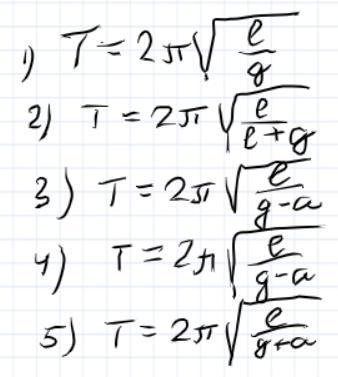 1) T = 2π√(e/g)
2) T = 2π√(e/(e+g))
3) T = 2π√(e/(g-a))
4) T = 2π√(e/(g-a))
5) T = 2π√(e/(g+a))